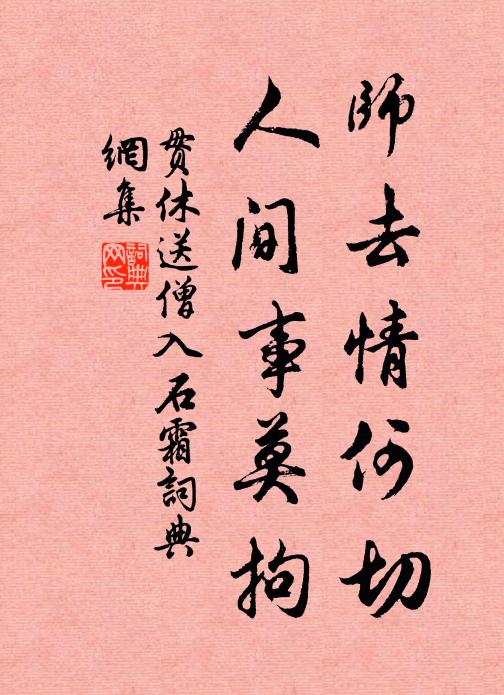 師去情何切
人間事莫拘
貫休送僧入石霜詞典
網集
詞典
网印